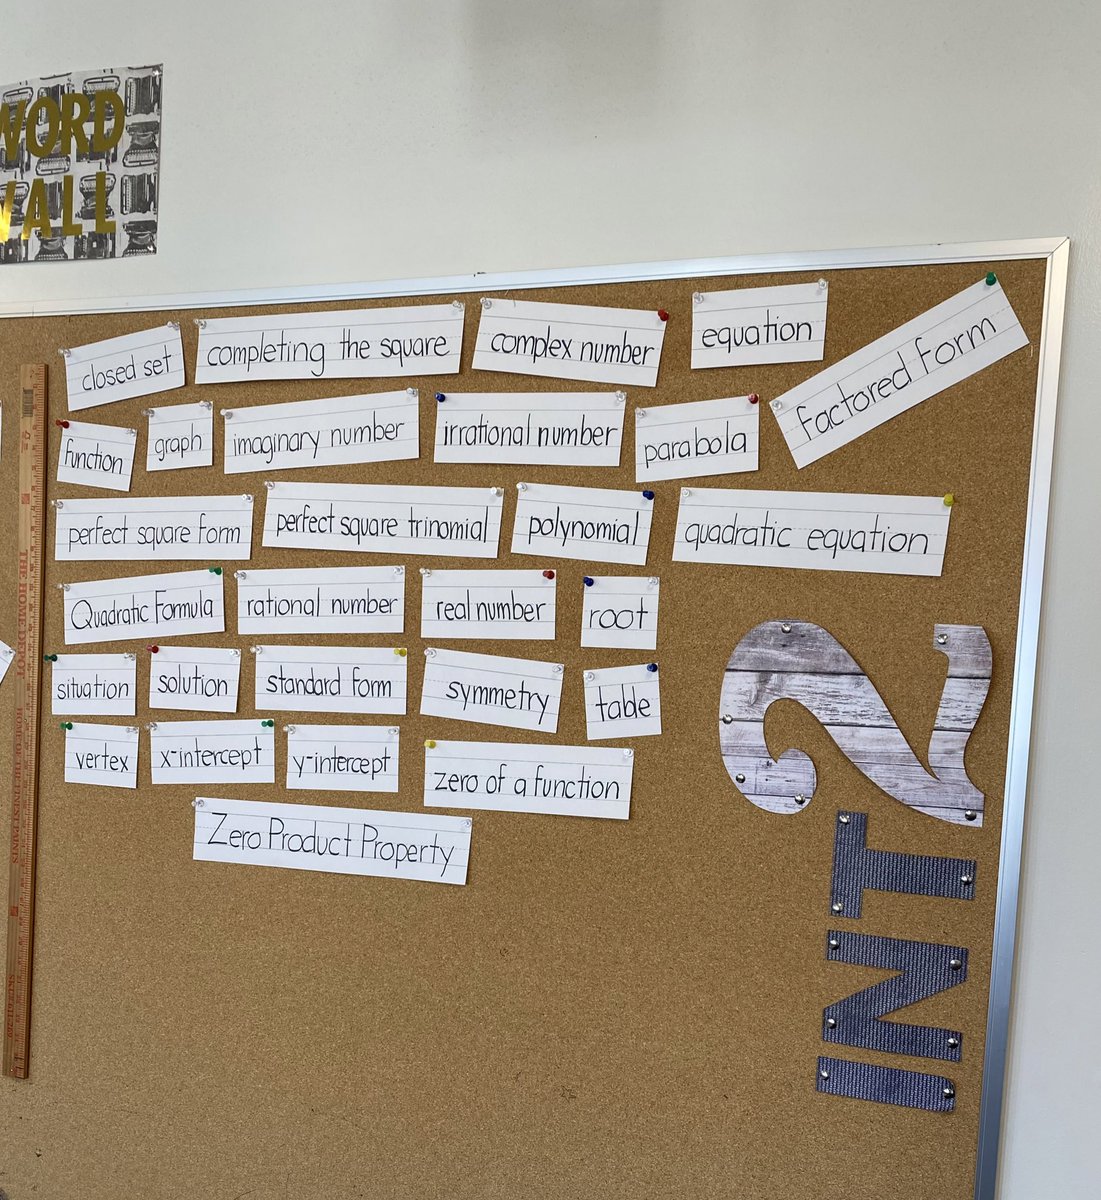 WORD
WALL
closed set
completing the square
complex number
equation
factored form
function
graph
imaginary number
irrational number
parabola
perfect square form
perfect square trinomial
polynomial
quadratic equation
Quadratic Formula
rational number
real number
root
situation
solution
standard form
symmetry
table
vertex
x-intercept
y-intercept
zero of a function
Zero Product Property
INT 2
THE HOME DEPOT